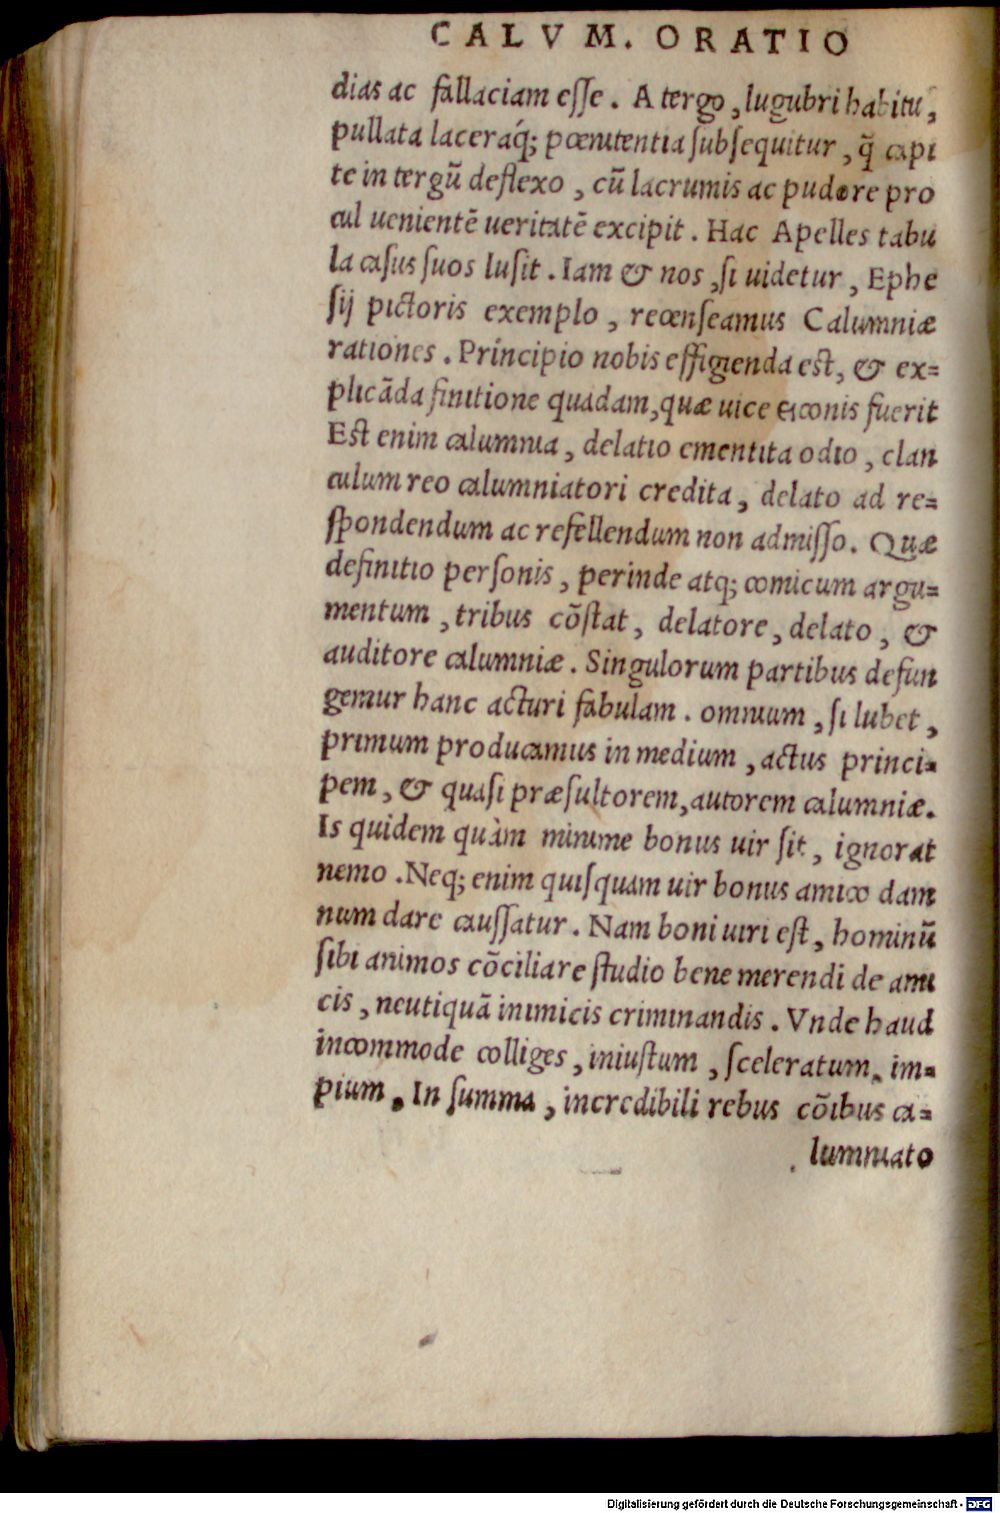 CALVM. ORATIO
dias ac fallaciam esse. A tergo, lugubri habitu,
pullata laceraq́; pœnitentia subsequitur, q̃ capi
te in tergũ deflexo, cũ lacrumis ac pudore pro
cul uenientẽ ueritatẽ excipit. Hac Apelles tabu
la casus suos lusit. Iam & nos, si uidetur, Ephe
sij pictoris exemplo, recenseamus Calumniæ
rationes. Principio nobis effigienda est, & ex=
plicãda finitione quadam, quæ uice eiconis fuerit
Est enim calumnia, delatio ementita odio, clan
culum reo calumniatori credita, delato ad re=
spondendum ac refellendum non admisso. Quæ
definitio personis, perinde atq; comicum argu=
mentum, tribus cõstat, delatore, delato, &
auditore calumniæ. Singulorum partibus defun
gemur hanc acturi fabulam. omnium, si lubet,
primum producamus in medium, actus princi=
pem, & quasi præsultorem, autorem calumniæ.
Is quidem quàm minime bonus uir sit, ignorat
nemo. Neq; enim quisquam uir bonus amico dam
num dare caussatur. Nam boni uiri est, hominũ
sibi animos cõciliare studio bene merendi de ami
cis, neutiquã inimicis criminandis. Vnde haud
incommode colliges, iniustum, sceleratum, im=
pium. In summa, incredibili rebus cõibus ca=
lumniato
Digitalisierung gefördert durch die Deutsche Forschungsgemeinschaft - DFG